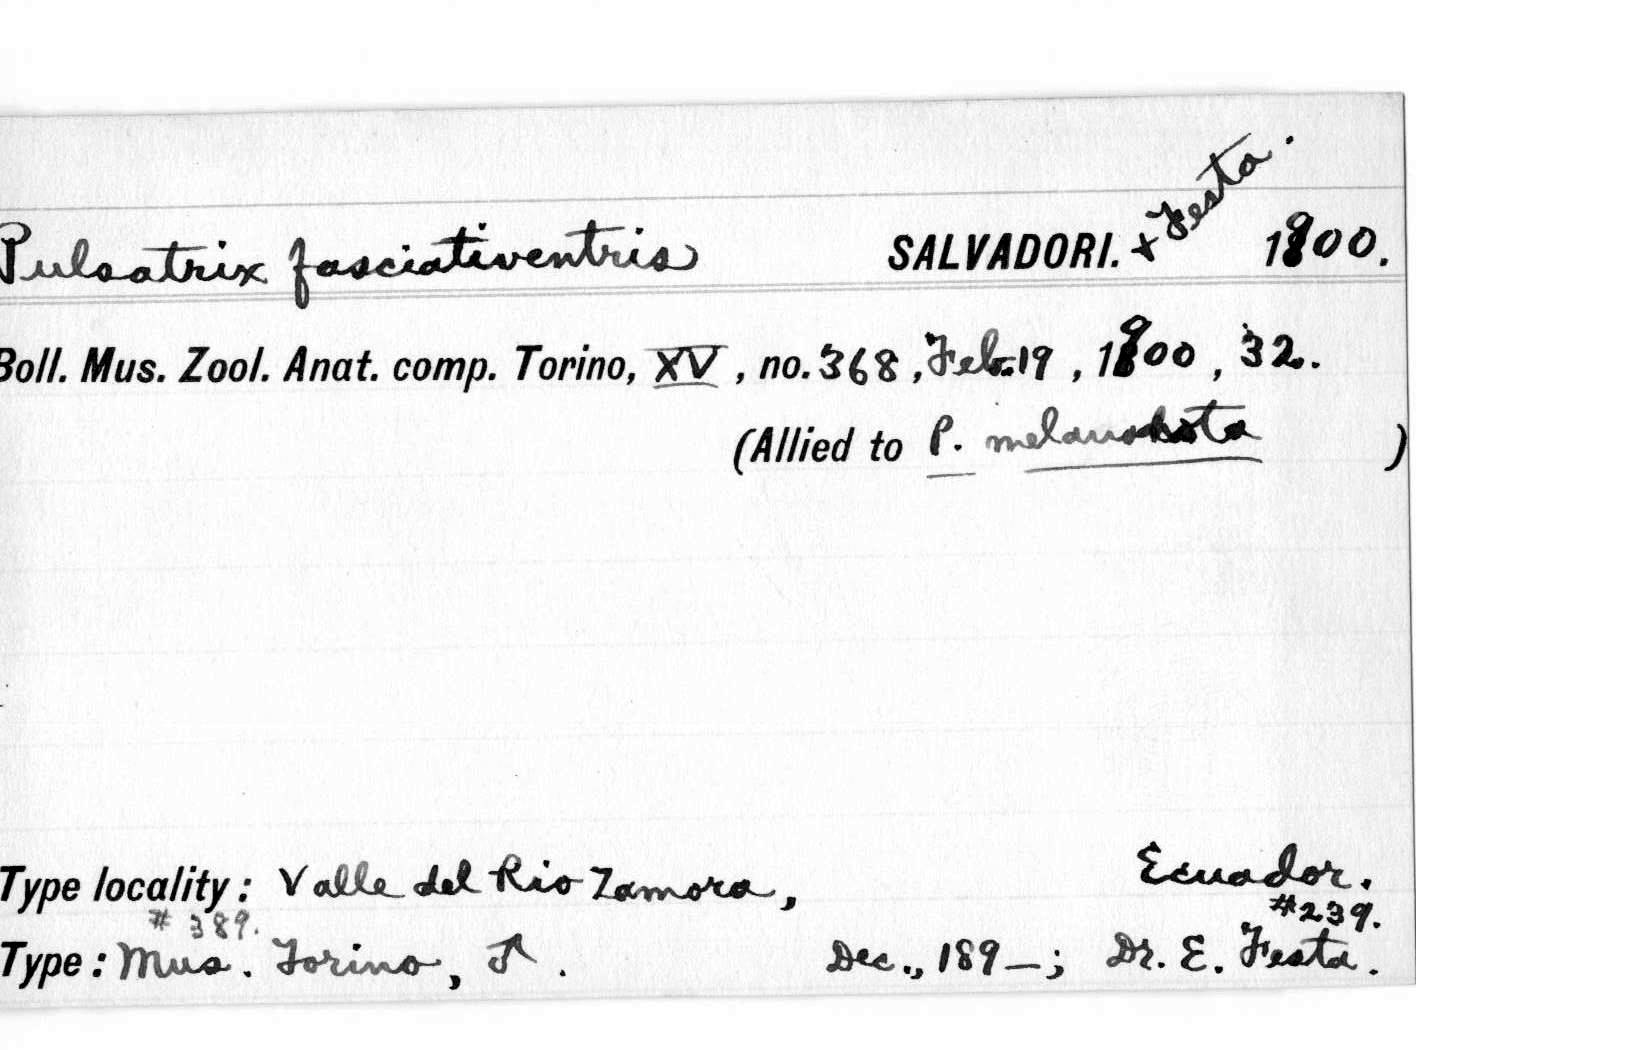 Pulsatrix fasciativentris SALVADORI. + Festa. 1900.
Boll. Mus. Zool. Anat. comp. Torino, XV, no. 368, Feb. 19, 1900, 32.
(Allied to P. melanonota )
Type locality: Valle del Rio Zamora, Ecuador.
# 389. #239.
Type: Mus. Torino, ♂. Dec., 189–; Dr. E. Festa.